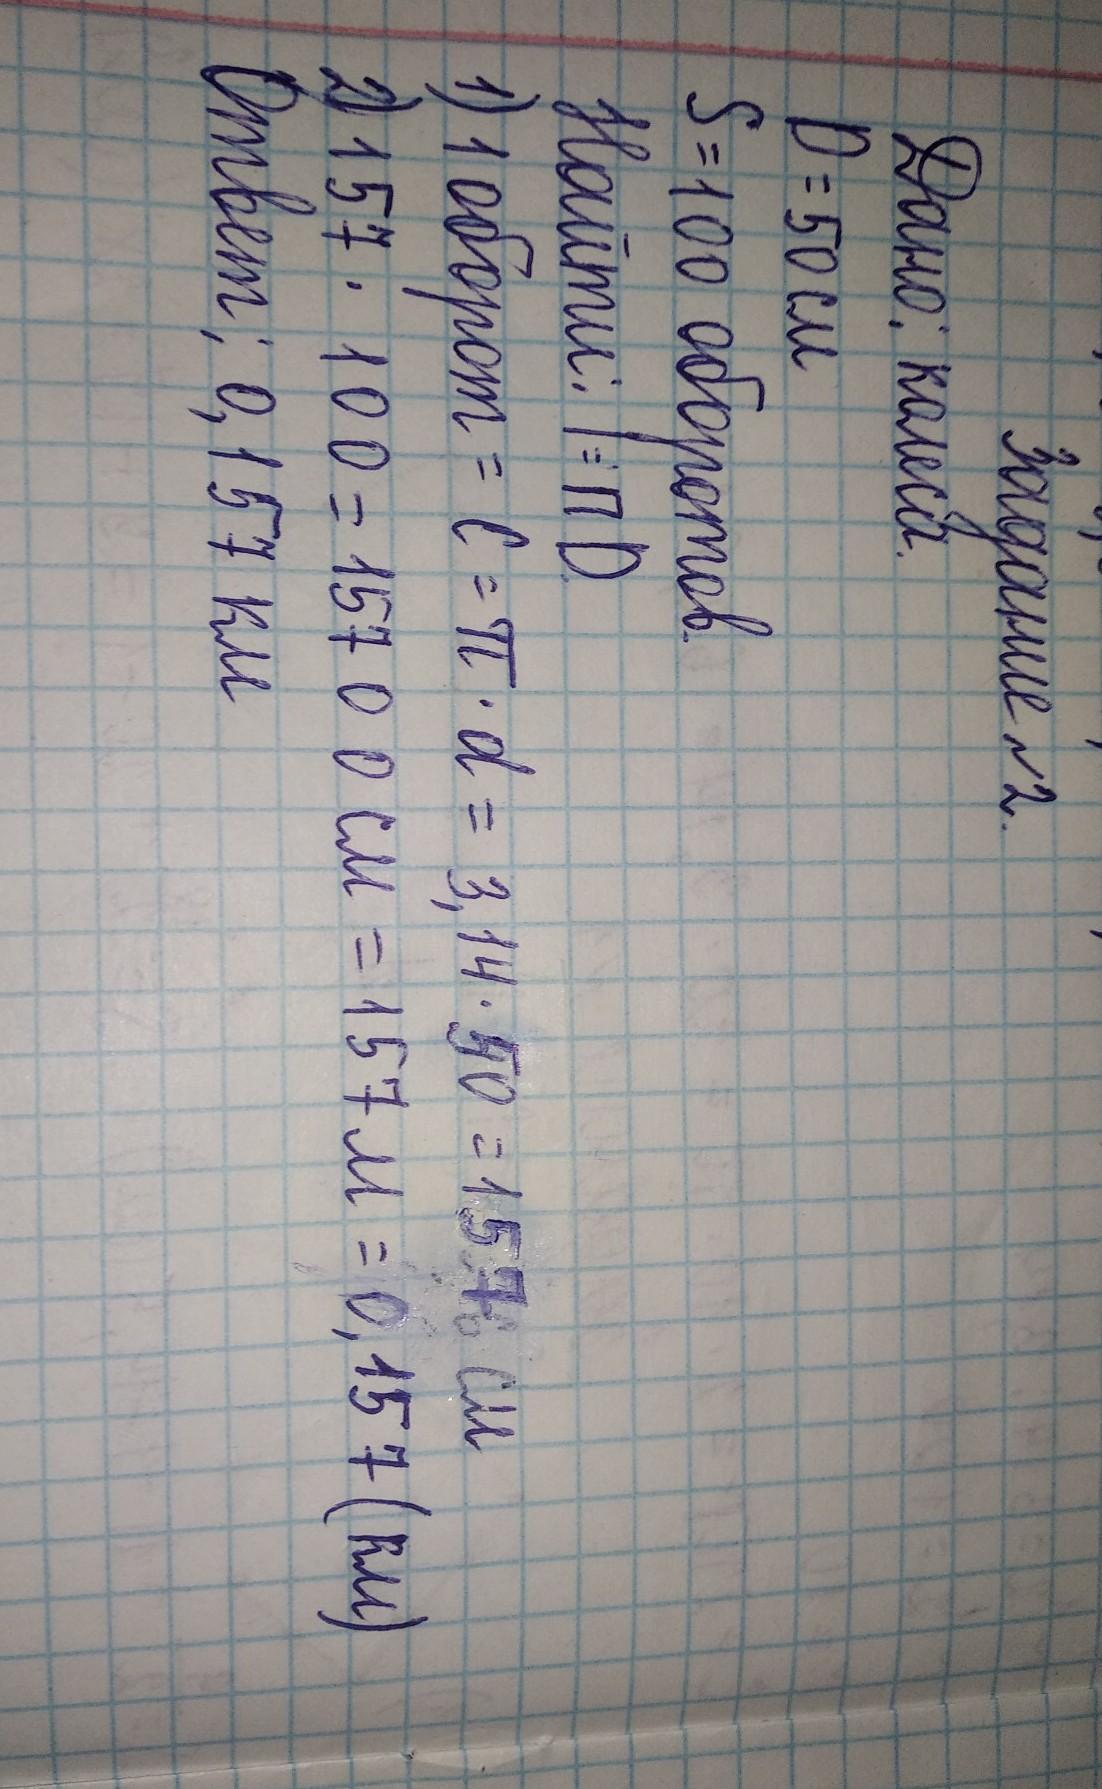 Задание №2.
Дано: колесо.
D = 50 см
S = 100 оборотов.
Найти: l = π D.
1) 1 оборот = C = π · d = 3,14 · 50 = 157 см
2) 157 · 100 = 15700 см = 157 м = 0,157 (км)
Ответ: 0,157 км